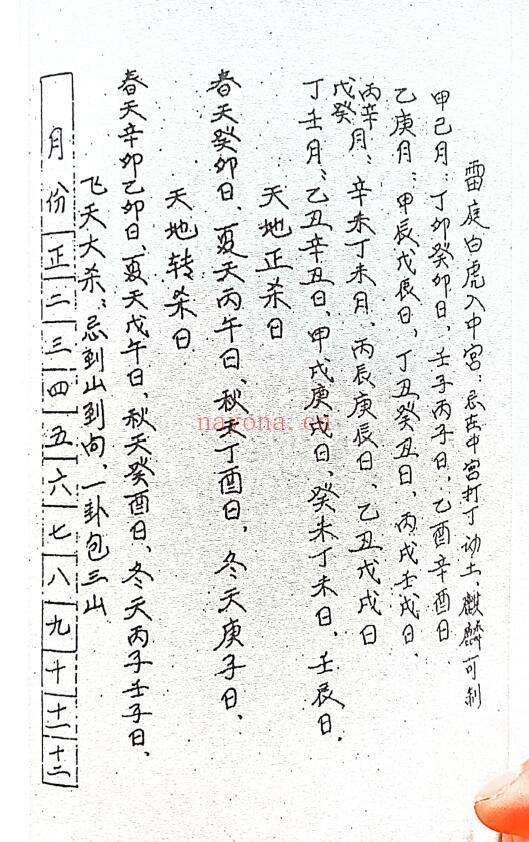 雷庭白虎入中宫：忌在中宫打丁动土，麒麟可制
甲己月：丁卯癸卯日、壬子丙子日、乙酉辛酉日．
乙庚月：甲辰戊辰日、丁丑癸丑日、丙戌壬戌日．
丙辛月：辛未丁未月、丙辰庚辰日、乙丑戊戌日
戊癸
丁壬月：乙丑辛丑日、甲戌庚戌日、癸未丁未日、壬辰日．
天地正杀日
春天癸卯日、夏天丙午日、秋天丁酉日、冬天庚子日．
天地转杀日
春天辛卯乙卯日、夏天戊午日、秋天癸酉日、冬天丙子壬子日．
飞天大杀：忌到山到向，一卦包三山
月份 正 二 三 四 五 六 七 八 九 十 十一 十二
nayona.cn